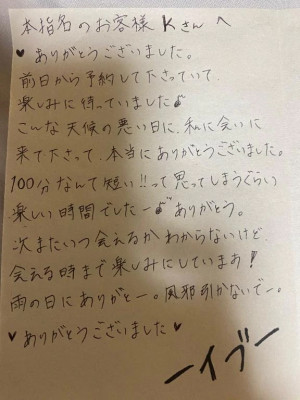 本指名のお客様 Kさんへ
♥ありがとうございました。
前日から予約して下さっていて、
楽しみに待っていました♪
こんな天候の悪い日に、私に会いに
来て下さって、本当にありがとうございました。
100分なんて短い!!って思ってしまうぐらい
楽しい時間でしたー♪ありがとう。
次またいつ会えるかわからないけど
会える時まで楽しみにしていまぁ!
雨の日にありがとー。風邪引かないでー。
♥ありがとうございました♥
ーイブー